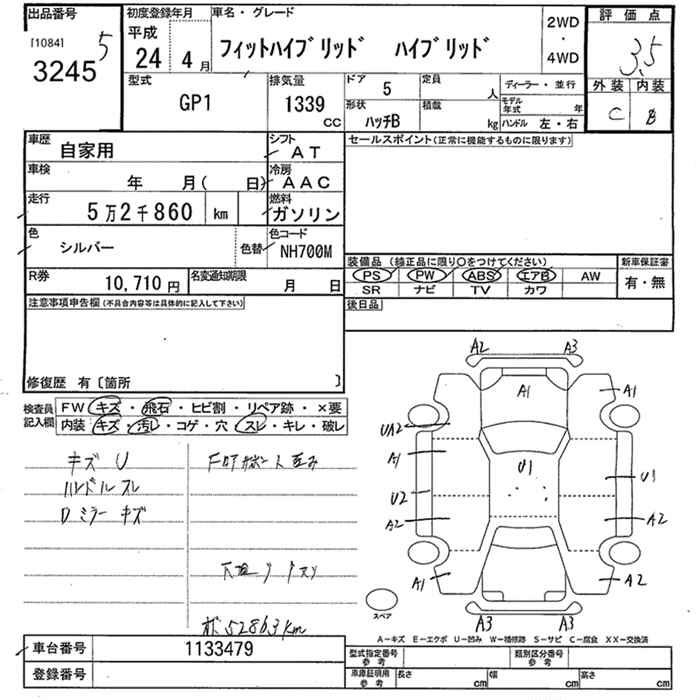 出品番号 初度登録年月 車名・グレード 評価点
[1084] 3245 5
平成 24年 4月
フィットハイブリッド ハイブリッド
2WD・4WD
3.5
型式 排気量 ドア 5 定員 人 ディーラー・並行 外装 内装
GP1 1339 CC 形状 ハッチB 積載 kg モデル年式 年 ハンドル 左・右 C B
車歴 自家用 シフト AT セールスポイント(正常に機能するものに限ります)
車検 年 月( 日) 冷房 AAC
走行 5万2千860 km 燃料 ガソリン
色 シルバー 色替 色コード NH700M 装備品(純正品に限り〇をつけてください) 新車保証書
PS PW ABS エアB AW 有・無
R券 10,710円 名変通知期限 月 日 SR ナビ TV カワ
注意事項申告欄(不具合内容等は具体的に記入して下さい) 後日品
修復歴 有〔箇所 〕
検査員記入欄 FW キズ・飛石・ヒビ割・リペア跡・×要
内装 キズ・汚レ・コゲ・穴・スレ・キレ・破レ
キズ U
ハンドル スレ
Dミラー キズ
52863km
A2 A3
A1 A1
UA2
A1 U1 U1
U2
A2 A2
A1 A2
A3 A3
スペア
A-キズ E-エクボ U-凹み W-補修跡 S-サビ C-腐食 XX-交換済
車台番号 1133479 型式指定番号 参考 類別区分番号 参考
登録番号 車庫証明用 参考 長さ cm 幅 cm 高さ cm